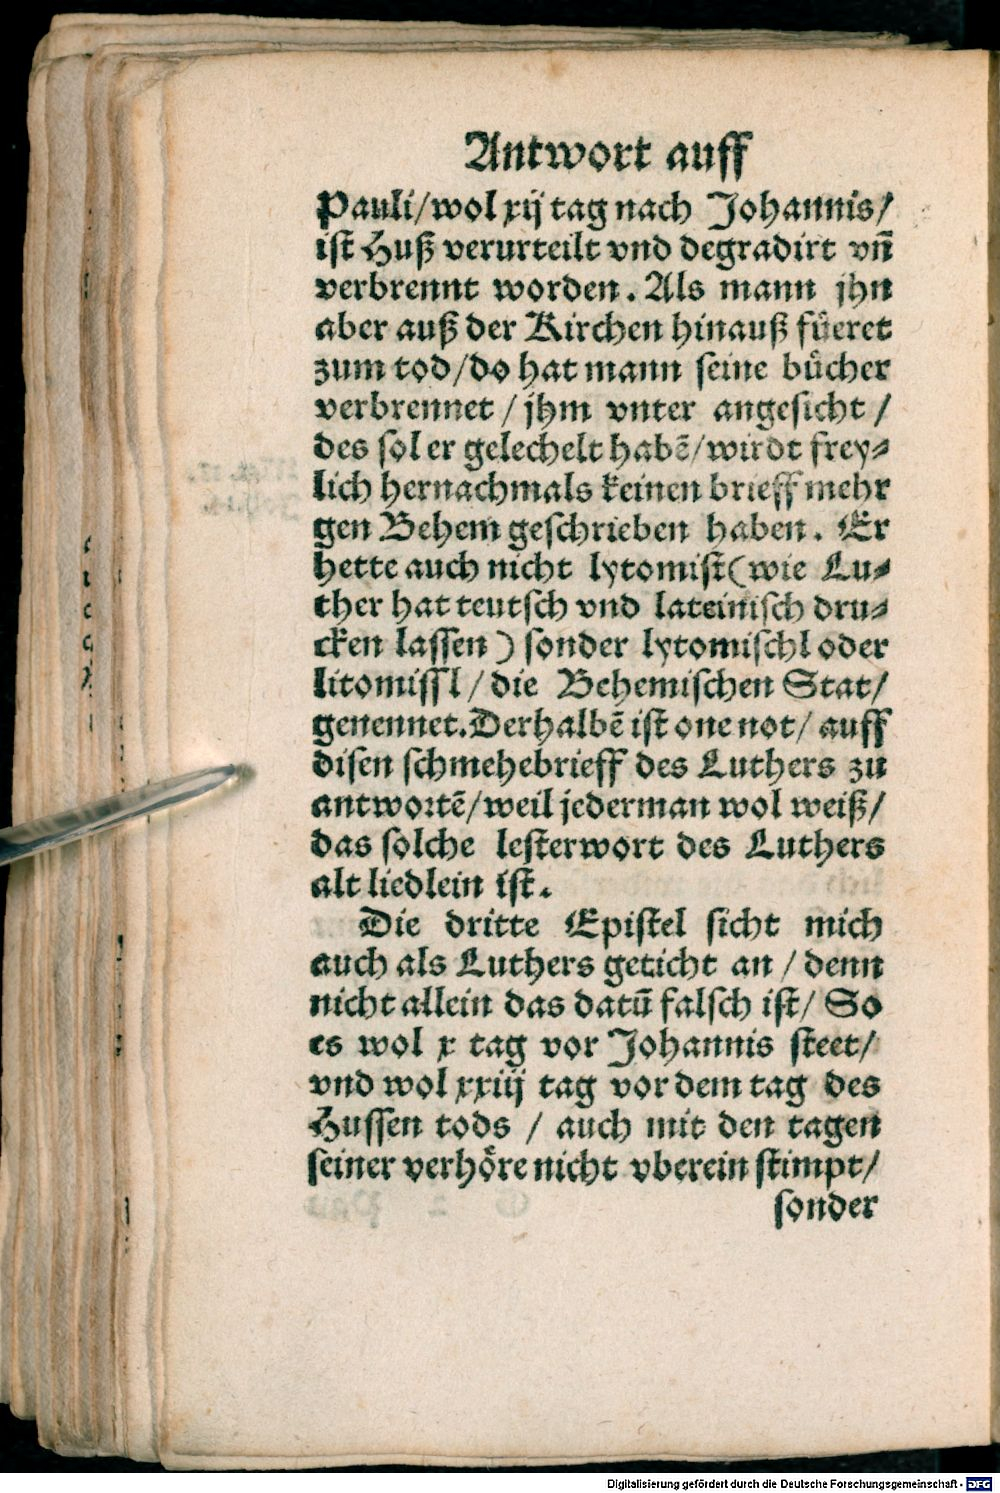 Antwort auff
Pauli/wol xij tag nach Johannis/
ist Huß verurteilt vnd degradirt vñ
verbrennt worden. Als mann jhn
aber auß der Kirchen hinauß fuͤeret
zum tod/do hat mann seine buͤcher
verbrennet / jhm vnter angesicht /
des sol er gelechelt habẽ/wirdt frey⸗
lich hernachmals keinen brieff mehr
gen Behem geschrieben haben. Er
hette auch nicht lytomist(wie Lu⸗
ther hat teutsch vnd lateinisch dru⸗
cken lassen) sonder lytomischl oder
litomissl / die Behemischen Stat/
genennet. Derhalbẽ ist one not/ auff
disen schmehebrieff des Luthers zu
antwortẽ/weil jederman wol weiß/
das solche lesterwort des Luthers
alt liedlein ist.
Die dritte Epistel sicht mich
auch als Luthers geticht an / denn
nicht allein das datũ falsch ist/ So
es wol x tag vor Johannis steet/
vnd wol xxiij tag vor dem tag des
Hussen tods / auch mit den tagen
seiner verhoͤre nicht vberein stimpt/
sonder
Digitalisierung gefördert durch die Deutsche Forschungsgemeinschaft - DFG